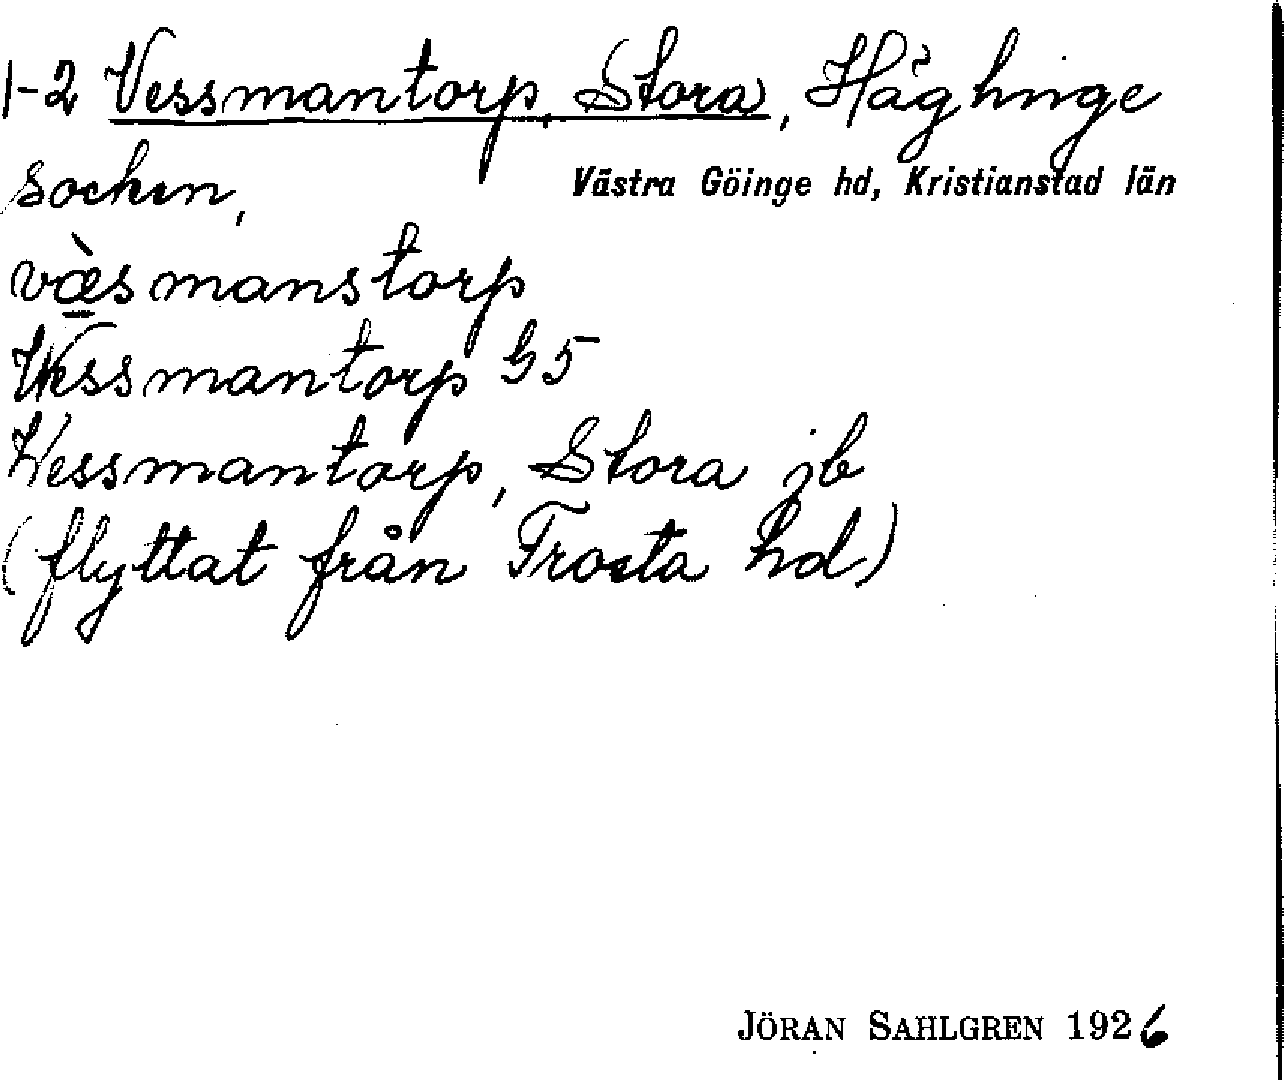 1-2 Vessmantorp, Stora, Häglinge
socken,
Västra Göinge hd, Kristianstad län
væ̀smanstorp
Wessmantorp G5
Wessmantorp, Stora jb
(flyttat från Frosta hd)
JÖRAN SAHLGREN 1926